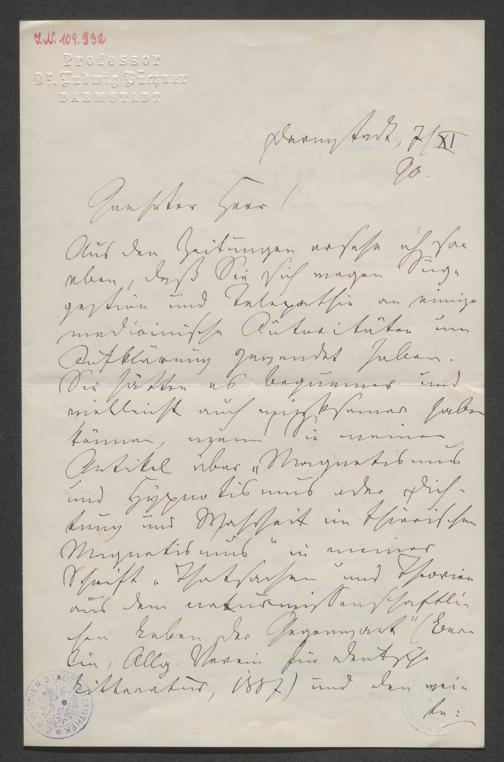 J.N. 109.332
Professor
Dr. Ludwig Büchner
DARMSTADT
Darmstadt, 7/XI
90.
Geehrter Herr!
Aus den Zeitungen ersehe ich so
eben, daß Sie sich wegen Sug-
gestion und Telepathie an einige
medicinische Autoritäten um
Aufklärung gewendet haben.
Sie hätten es bequemer und
vielleicht auch wirksamer haben
können, wenn Sie meinen
Artikel über „Magnetismus
und Hypnotismus oder Dich-
tung und Wahrheit im thierischen
Magnetismus" in meiner
Schrift „Thatsachen und Theorien
aus dem naturwissenschaftli-
chen Leben der Gegenwart" (Ber-
lin, Allg. Verein für deutsche
Litteratur, 1887) und den wei-
te: